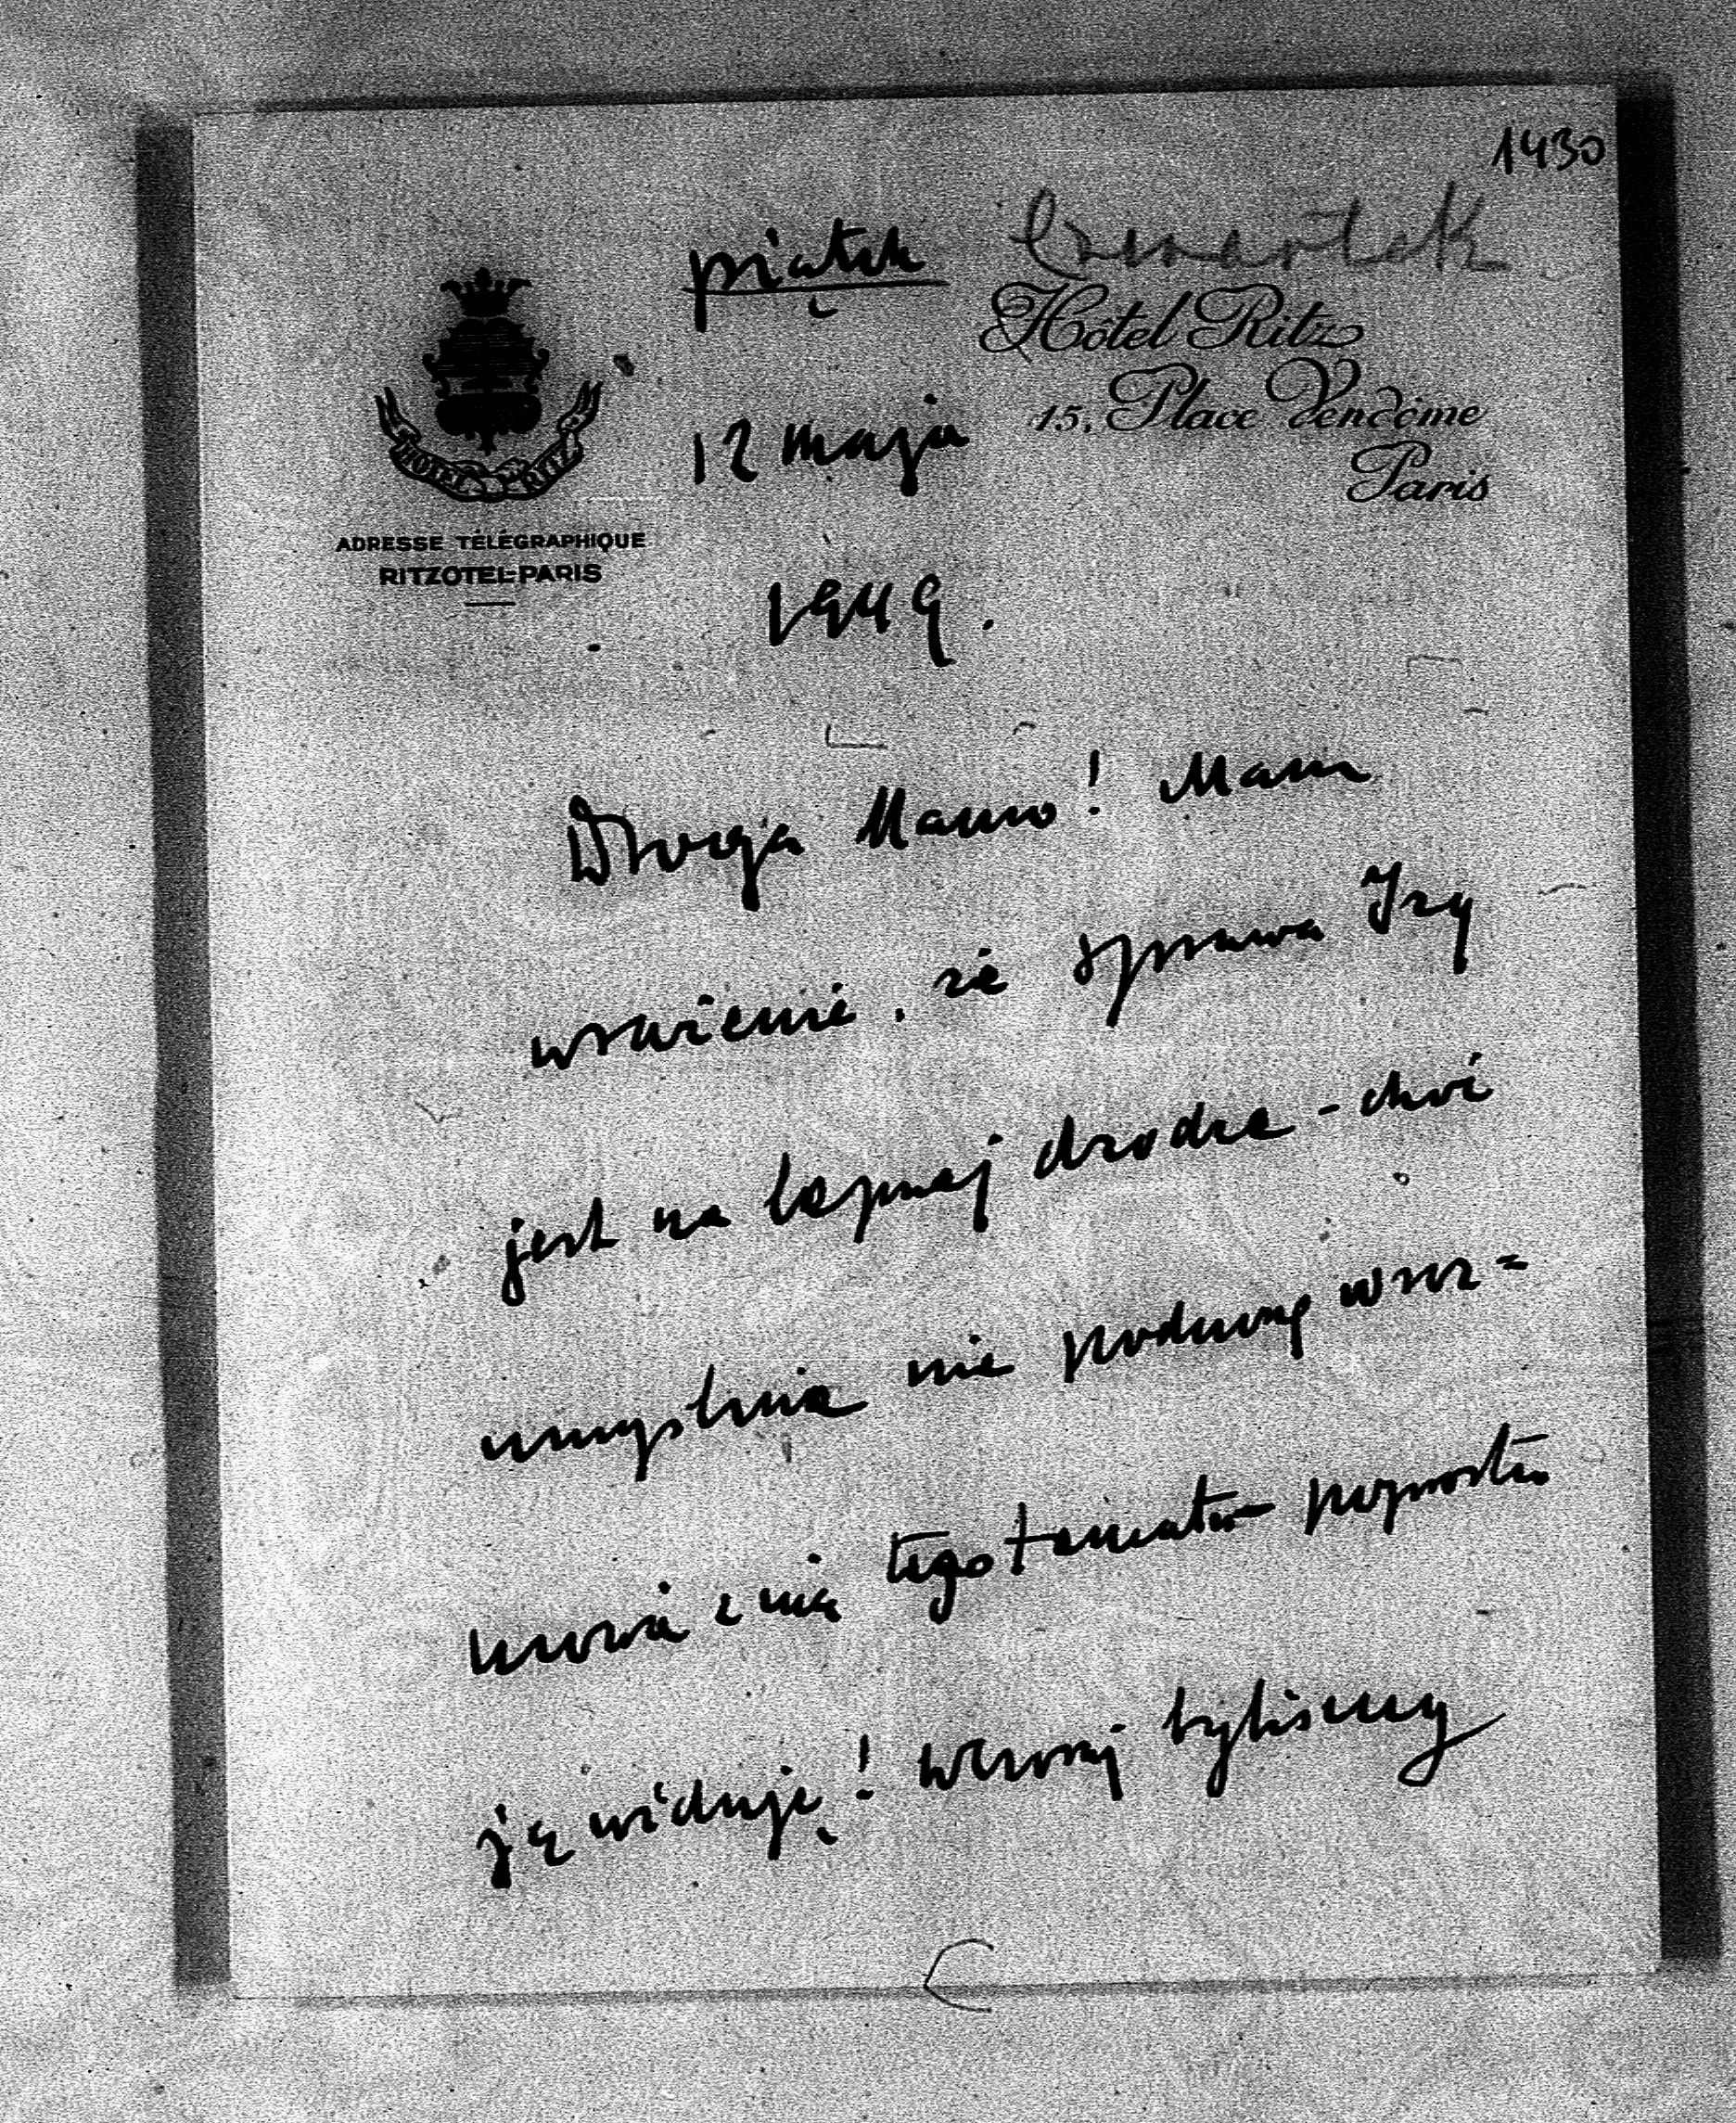 1430
piątek Czwartek
Hôtel Ritz
15, Place Vendôme
Paris
12 maja
HOTEL RITZ
ADRESSE TÉLÉGRAPHIQUE
RITZOTEL-PARIS
1949.
Droga Mamo! Mam
wrażenie, że sprawa Izy
jest na lepszej drodze - choć
umyślnie nie podnoszę w roz=
mowie z nią tego tematu po prostu
ją widuję! wczoraj byliśmy